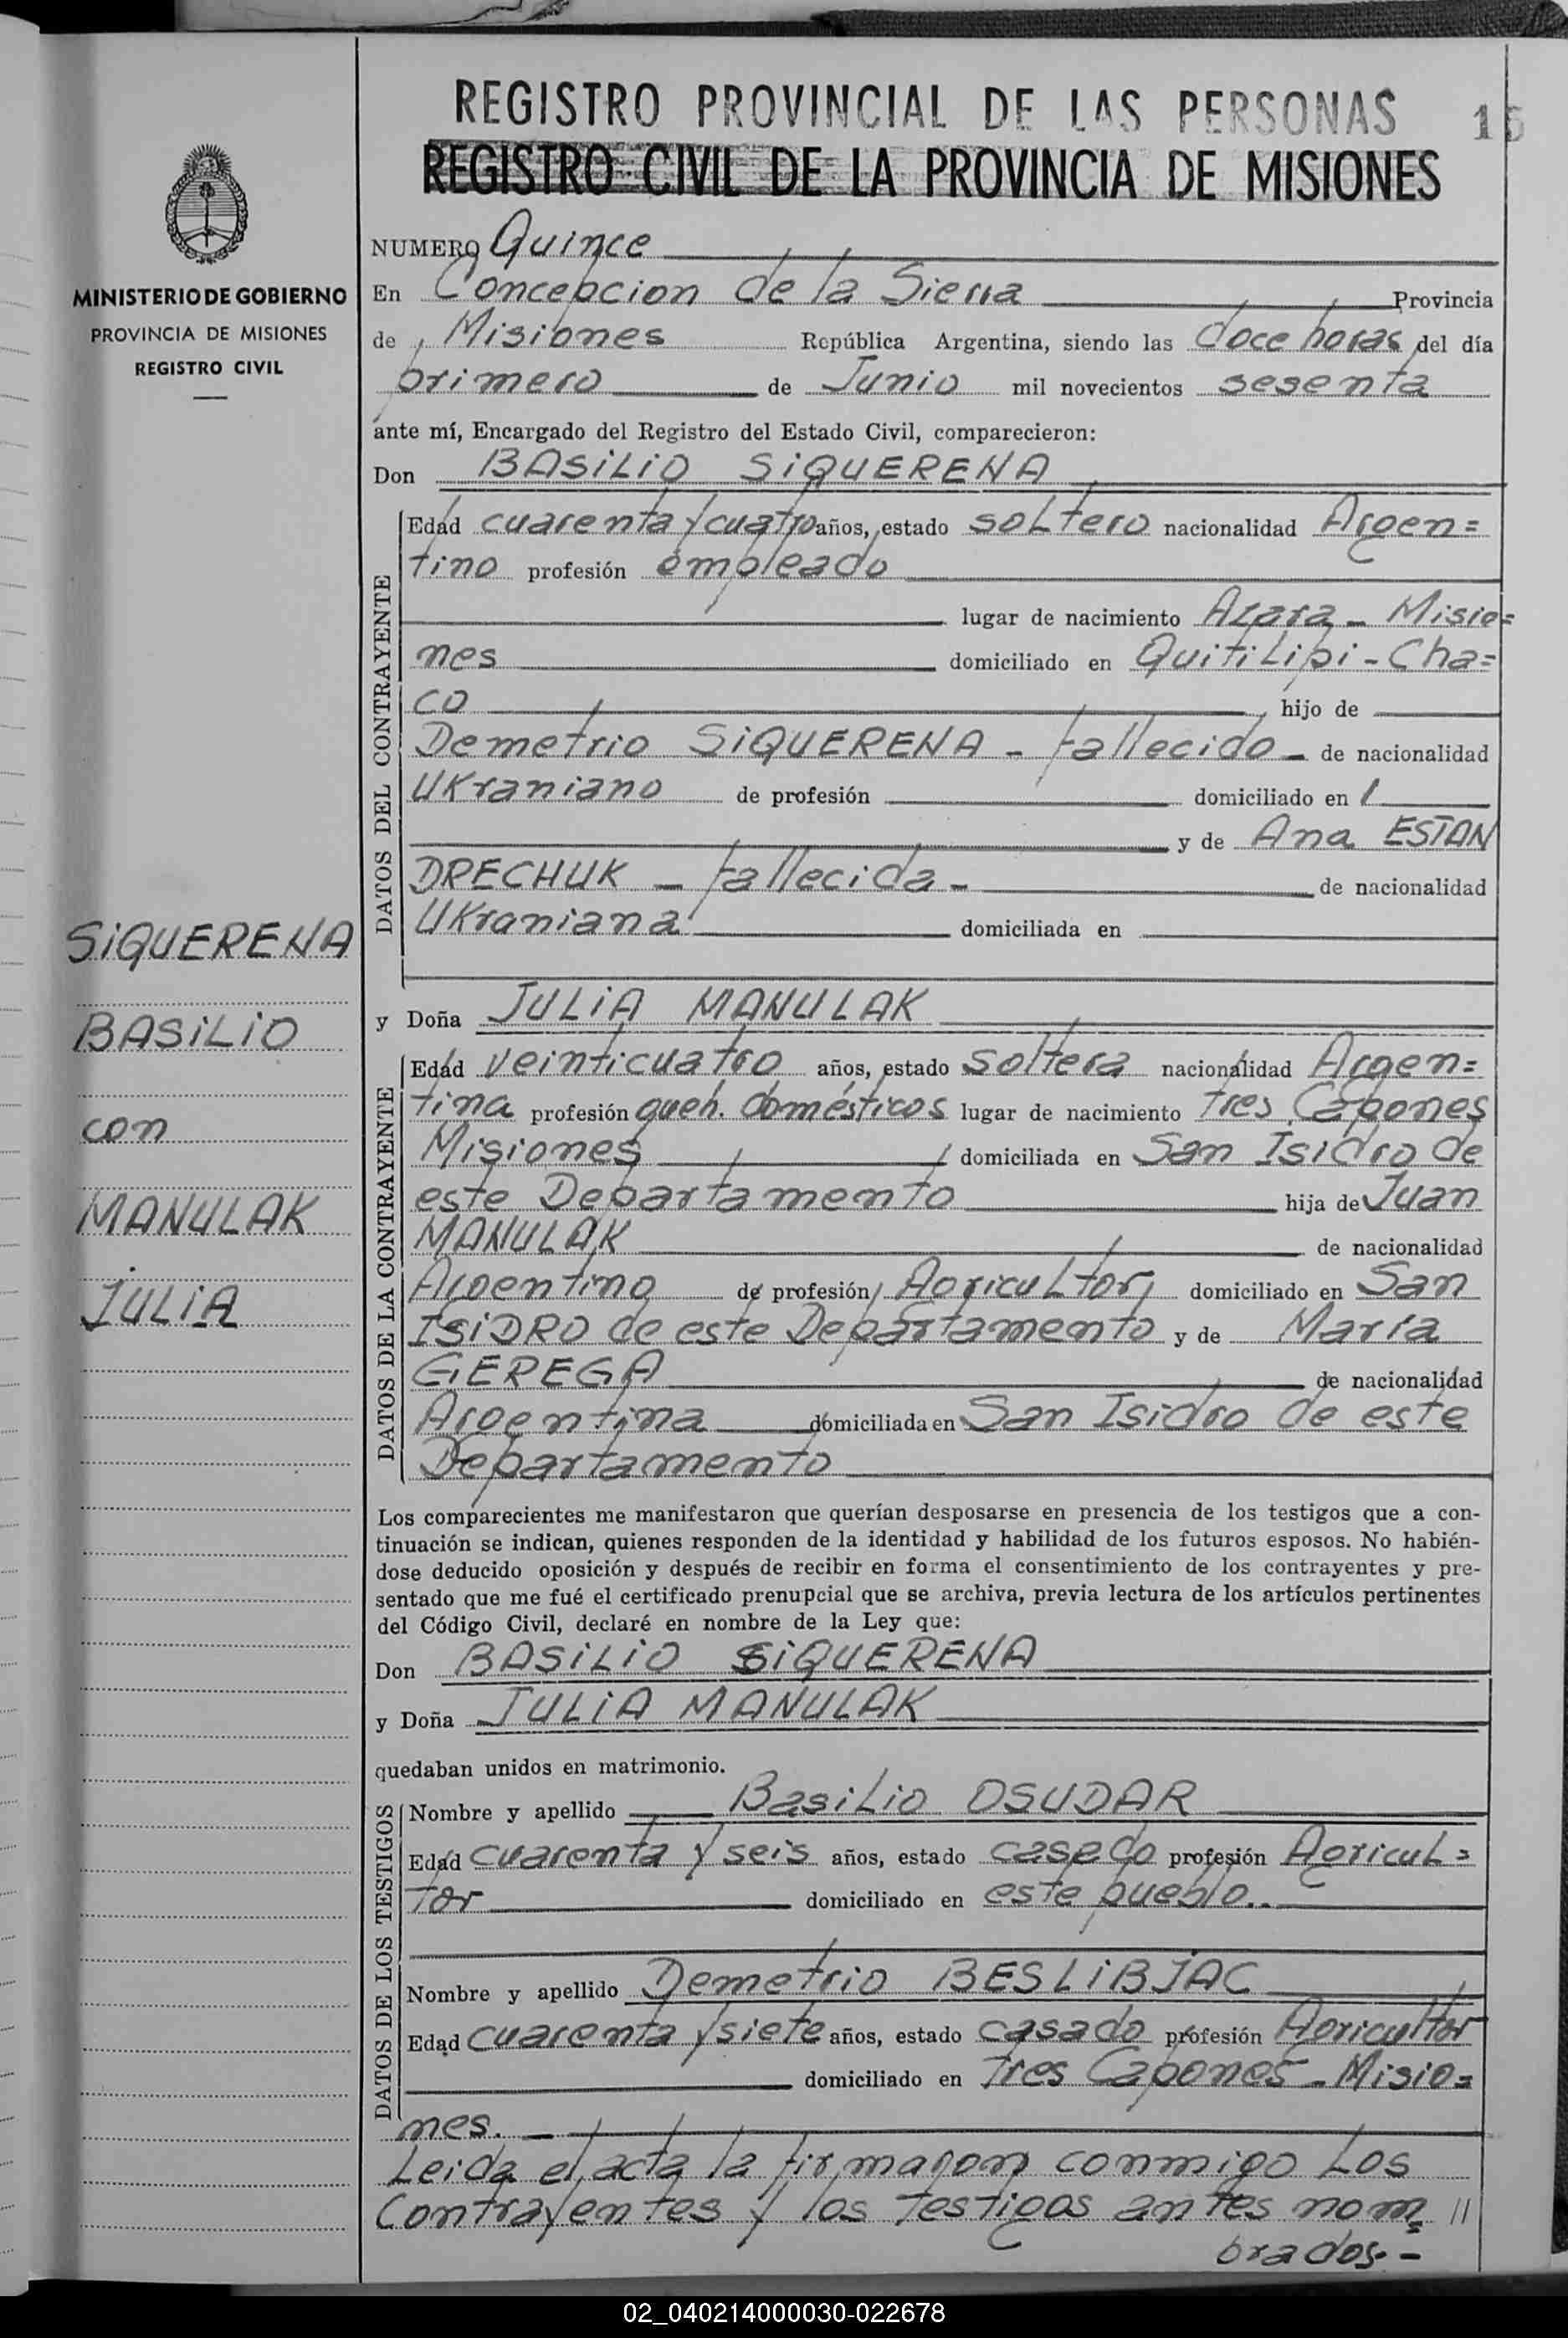 REGISTRO PROVINCIAL DE LAS PERSONAS 15
REGISTRO CIVIL DE LA PROVINCIA DE MISIONES
MINISTERIO DE GOBIERNO
PROVINCIA DE MISIONES
REGISTRO CIVIL
SiQUERENA
BASiLiO
con
MANULAK
JULiA
NUMERO Quince
En Concepcion de la Sierra Provincia
de Misiones República Argentina, siendo las doce horas del día
primero de Junio mil novecientos sesenta
ante mí, Encargado del Registro del Estado Civil, comparecieron:
Don BASiLiO SiQUERENA
DATOS DEL CONTRAYENTE
Edad cuarenta y cuatro años, estado soltero nacionalidad Argen=
tino profesión empleado
lugar de nacimiento Azara - Misio=
nes domiciliado en Quitilipi - Cha=
co hijo de
Demetrio SiQUERENA - fallecido - de nacionalidad
Ukraniano de profesión domiciliado en
y de Ana ESTAN
DRECHUK - fallecida - de nacionalidad
Ukraniana domiciliada en
y Doña JULiA MANULAK
DATOS DE LA CONTRAYENTE
Edad veinticuatro años, estado soltera nacionalidad Argen=
tina profesión queh. domésticos lugar de nacimiento Tres Capones
Misiones domiciliada en San Isidro de
este Departamento hija de Juan
MANULAK de nacionalidad
Argentino de profesión Agricultor domiciliado en San
ISiDRO de este Departamento y de María
GEREGA de nacionalidad
Argentina domiciliada en San Isidro de este
Departamento
Los comparecientes me manifestaron que querían desposarse en presencia de los testigos que a con-
tinuación se indican, quienes responden de la identidad y habilidad de los futuros esposos. No habién-
dose deducido oposición y después de recibir en forma el consentimiento de los contrayentes y pre-
sentado que me fué el certificado prenupcial que se archiva, previa lectura de los artículos pertinentes
del Código Civil, declaré en nombre de la Ley que:
Don BASiLiO SiQUERENA
y Doña JULiA MANULAK
quedaban unidos en matrimonio.
DATOS DE LOS TESTIGOS
Nombre y apellido Basilio OSUDAR
Edad cuarenta y seis años, estado casado profesión Agricul=
tor domiciliado en este pueblo..
Nombre y apellido Demetrio BESLiBJAC
Edad cuarenta y siete años, estado casado profesión Agricultor
domiciliado en Tres Capones - Misio=
nes. -
Leida el acta la firmaron conmigo los
Contrayentes y los testigos antes nom= //
brados.-
02_040214000030-022678